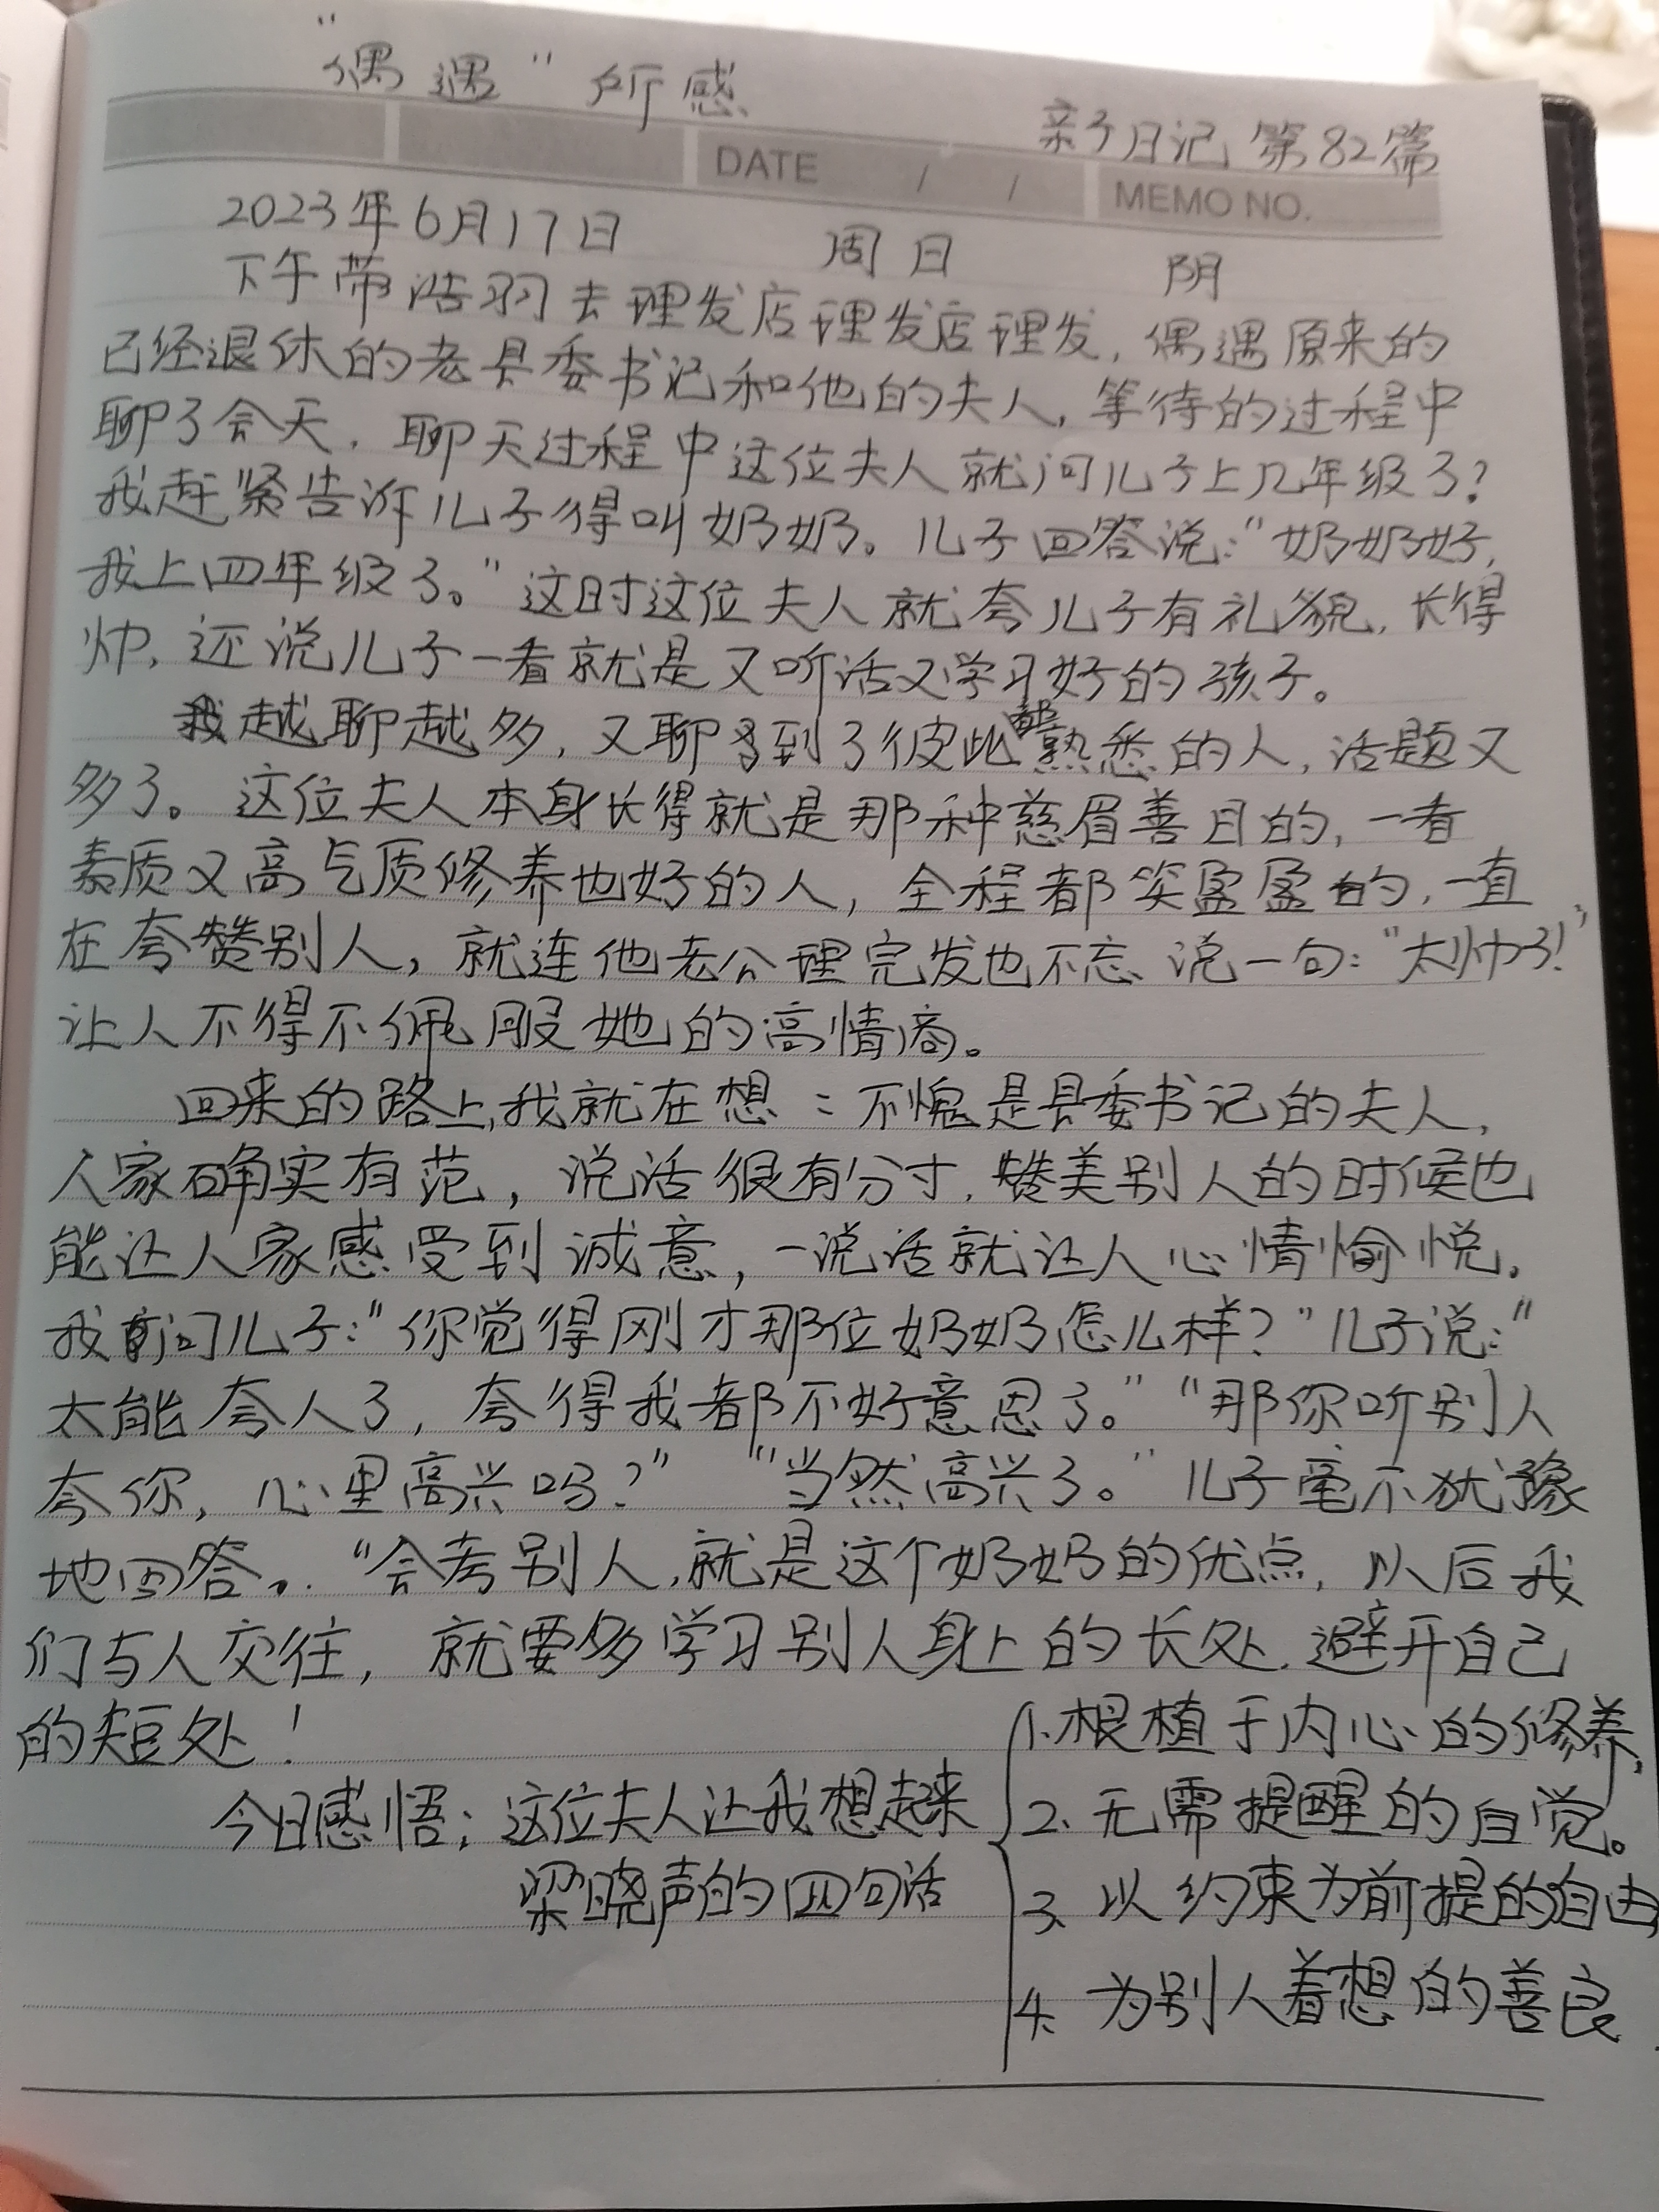 “偶遇”所感
亲子日记 第82篇
DATE / /
MEMO NO.
2023年6月17日 周日 阴
下午带浩羽去理发店理发店理发，偶遇原来的
已经退休的老县委书记和他的夫人，等待的过程中
聊了会天，聊天过程中这位夫人就问儿子上几年级了？
我赶紧告诉儿子得叫奶奶。儿子回答说：“奶奶好，
我上四年级了。”这时这位夫人就夸儿子有礼貌，长得
帅，还说儿子一看就是又听话又学习好的孩子。
我越聊越多，又聊到了彼此都熟悉的人，话题又
多了。这位夫人本身长得就是那种慈眉善目的，一看
素质又高气质修养也好的人，全程都笑盈盈的，一直
在夸赞别人，就连他老公理完发也不忘说一句：“太帅了！”
让人不得不佩服她的高情商。
回来的路上，我就在想：不愧是县委书记的夫人，
人家确实有范，说话很有分寸，赞美别人的时候也
能让人家感受到诚意，一说话就让人心情愉悦。
我问儿子：“你觉得刚才那位奶奶怎么样？”儿子说：“
太能夸人了，夸得我都不好意思了。”“那你听别人
夸你，心里高兴吗？”“当然高兴了。”儿子毫不犹豫
地回答。“会夸别人，就是这个奶奶的优点，以后我
们与人交往，就要多学习别人身上的长处，避开自己
的短处！
今日感悟：这位夫人让我想起来
梁晓声的四句话
1、根植于内心的修养，
2、无需提醒的自觉。
3、以约束为前提的自由
4、为别人着想的善良.